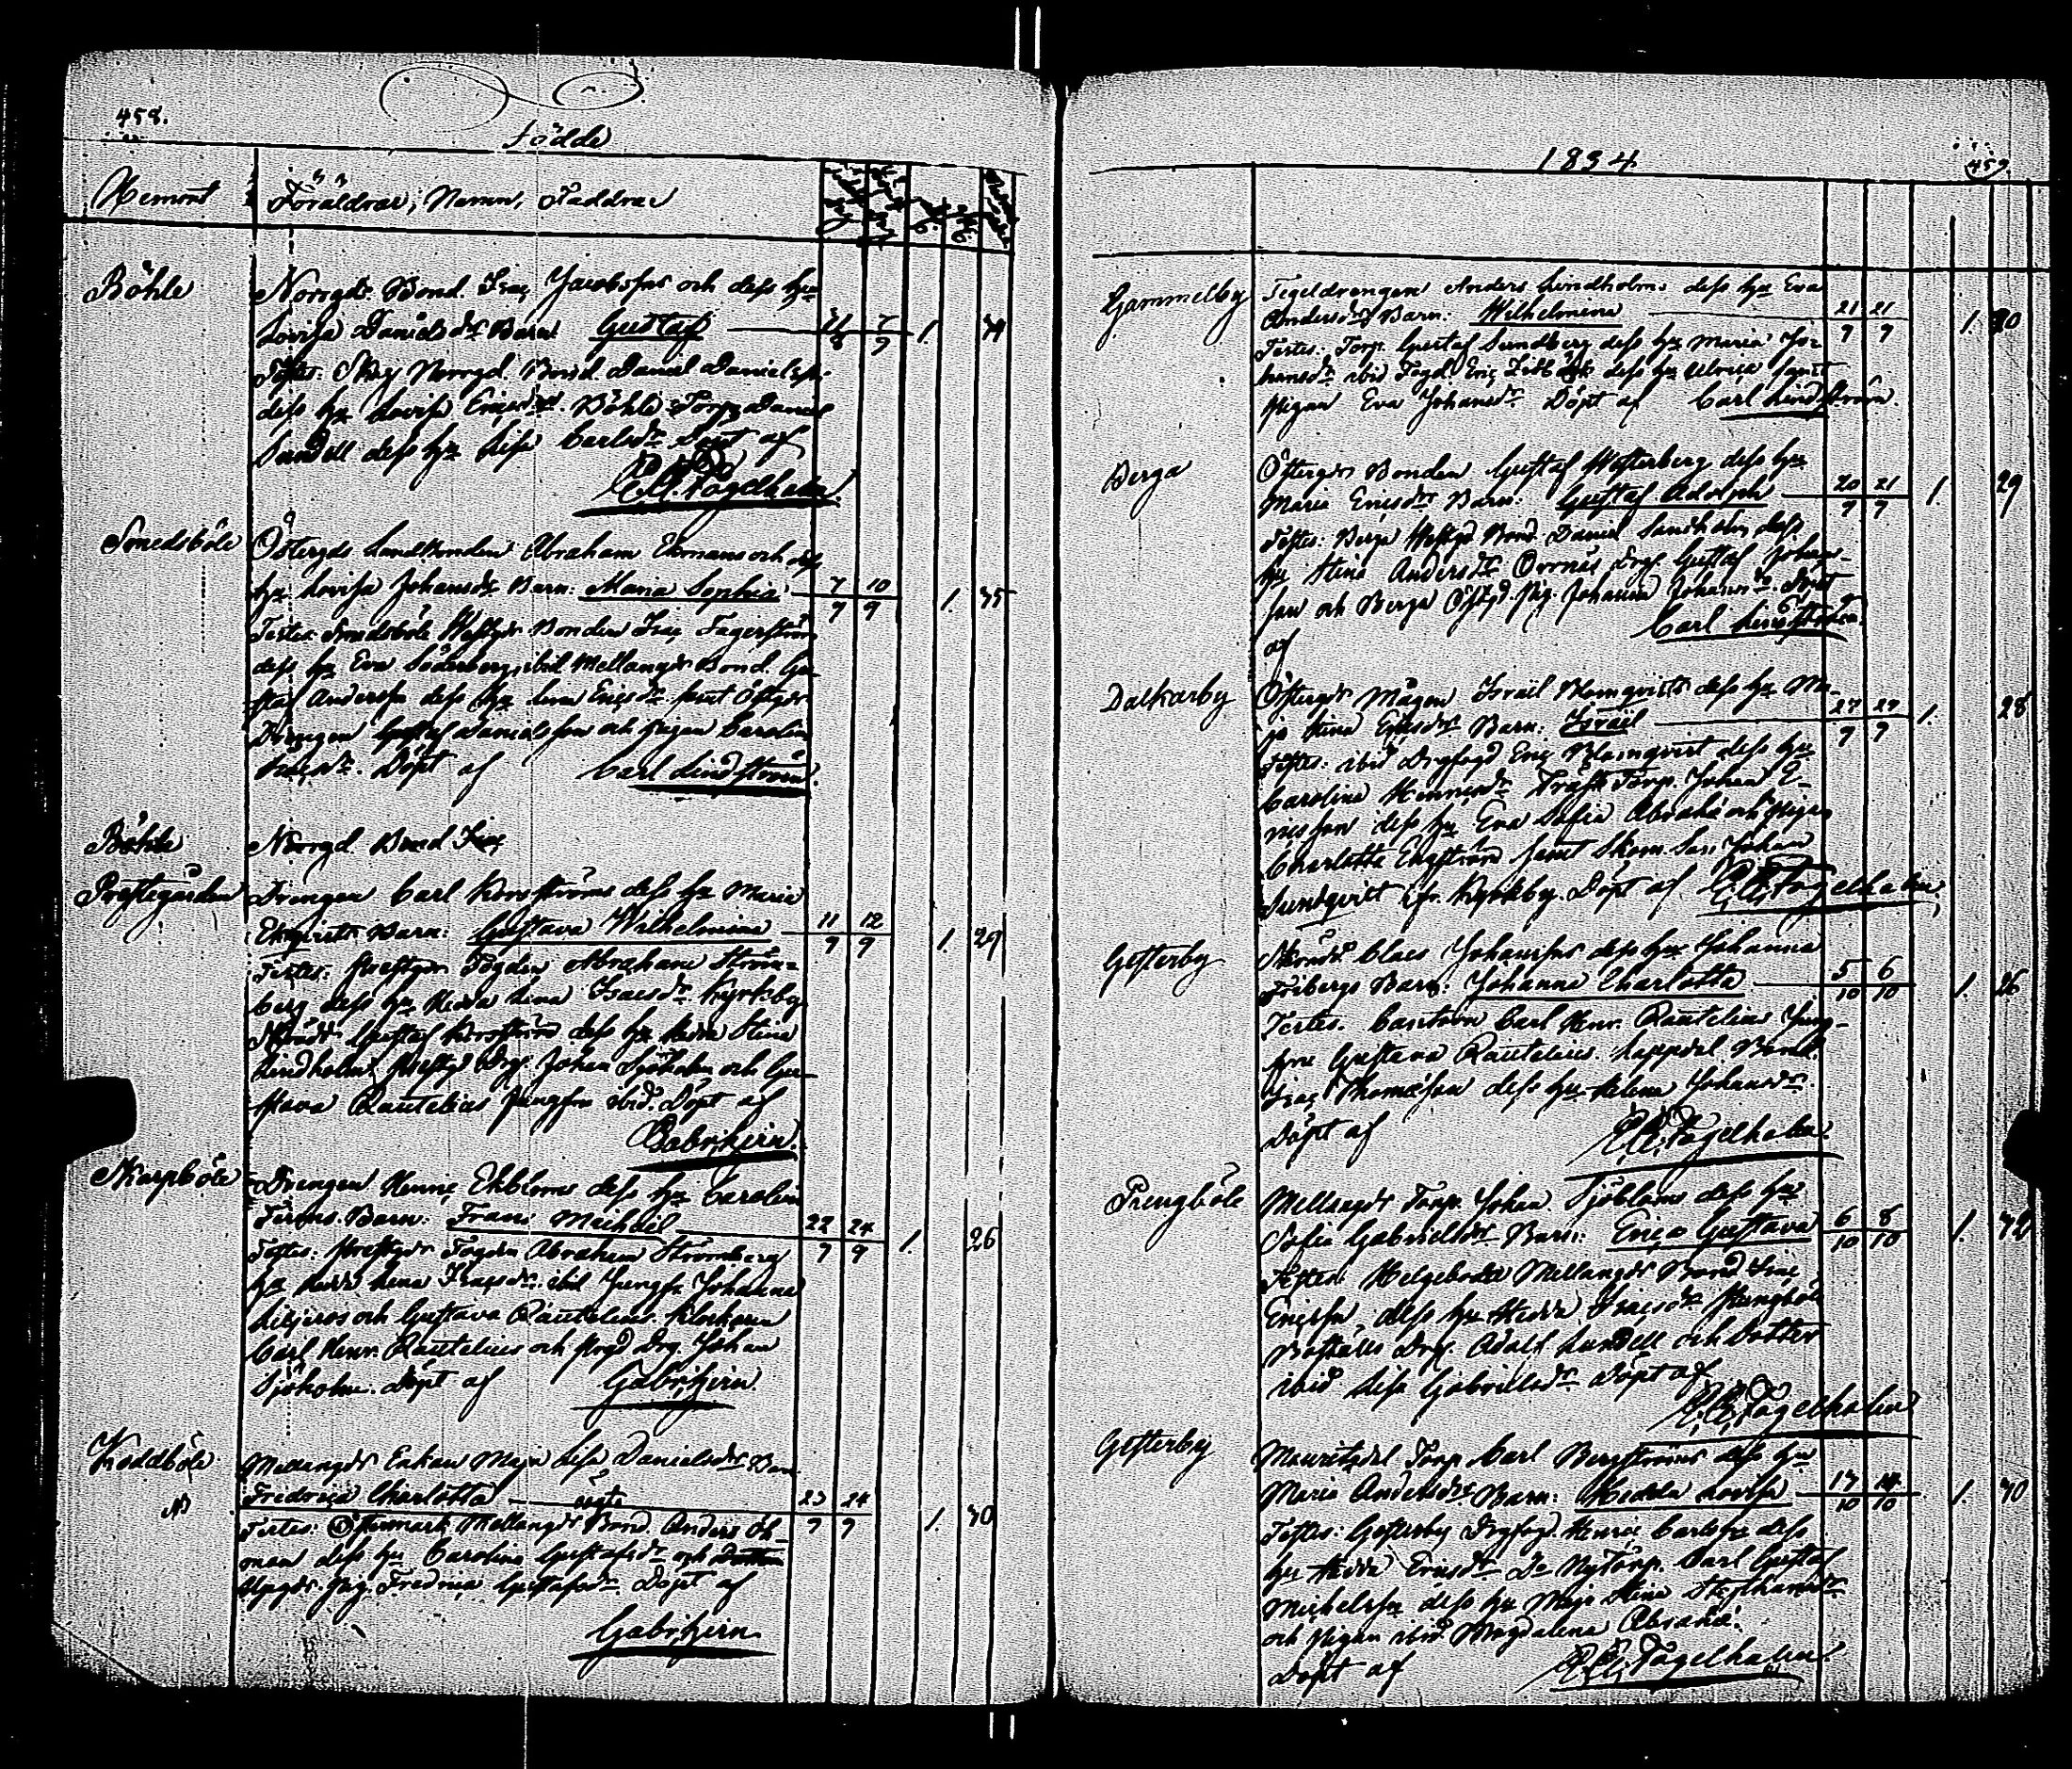 458.
Födde
Hemort
Föräldrar, Namn, Faddrar
Böhle
Norrgds Bond. Isac Jacobsons och dess hu
Lovisa Danielsdr Barn Gustaf
31 7
8 9
1. 34
Testes: Norrgd. Bond. Daniel Danielsson
dess hu Lovisa Ericsdr. Böhle Torp. Daniel
Sundell dess hu Lisa Carlsdr Döpt af
Fogelholm
Smedsböle
Östergds Landbonden Abraham Ekmans och dess
hu Lovisa Johansdr Barn: Maria Sophia
7 10
9 9
1. 35
Testes Smedsböle Westgds Bonden Isac Fagerström
dess hu Eva Söderberg, ibid Mellangds Bond. Gu-
staf Andersson dess hu Ericsdr. samt Östgds
Drengen Gustaf Danielsson och pigan Carolin
Döpt af Carl Lindström.
Böhle
Norrgd. Bond Isac
Prestegården
Drengen Carl Korsströms dess hu Maria
Ekqvists Barn: Gustava Wilhelmina
11 12
9 9
1. 29
Testes: Prestgds Fogden Abraham Ström-
berg dess hu Hedda Lena Isacsdr. Kyrkoby
Gustaf Korsström dess hu Hedda Stina
Lindholm, Prestgd Drg. Johan Sjöholm och Gu-
stava Rautelius Jungfru ibid. Döpt af
Gabr. Hirn.
Karpböle
Drengen Henric Ekbloms dess hu Carolin
Barn: Frans Michael
22 24
9 9
1. 26
Testes: Prestgds Fogden Abraham Strömberg
hu Hedda Lena Isacsdr. ibid Jungfr Johanna
och Gustava Rautelius. Klockaren
Carl Henr. Rautelius och Prgd Drg. Johan
Sjöholm. Döpt af Gabr. Hirn.
Koddböle
Mellangds Enkan Maja Lisa Danielsdr Barn
Fredrica Charlotta — oägta
23 24
9 9
1. 30
Testes: Östermark Mellangds Bond. Anders Öh-
man dess hu Carolina Gustafsdr och
Uppgds Pig. Fredrica Gustafsdr. Döpt af
Gabr. Hirn.
1834.
459.
Gammelby
Tegeldrengen Anders Lindholms dess hu Eva
Andersdr Barn: Wilhelmina
21 21
9 9
1. 20
Testes: Torp. Gustaf Sundberg dess hu Maria Jo-
hansdr ibid Fogd. Eric dess hu Ulrica samt
Pigan Eva Johansdr. Döpt af Carl Lindström.
Berga
Östergds Bonden Gustaf Westerberg dess hu
Maria Ericsdr Barn: Gustaf Adolph
20 21
9 9
1. 29
Testes: Berga Westgd Bond. Daniel Sandholm dess
hu Stina Andersdr Orrnäs Drg. Gustaf Johan-
son och Berga Östgd. Pig. Johanna Johansdr. Döpt
af Carl Lindström.
Dalkarby
Östergds Mågen Israel Blomqvists dess hu Ma-
ja Stina Ericsdr Barn: Israel
27 29
9 9
1. 28
Testes: ibid Drgfogd Eric Blomqvist dess hu
Carolina Henricsdr. Träsk Torp. Johan E-
ricsson dess hu Eva Sofia Abrah: och Pigan
Charlotta Engström samt Skom. Son Johan
Sundqvist fr. Kyrkby. Döpt af Fogelholm
Gesterby
Claes Johansons dess hu Johanna
Fribergs Barn: Johanna Charlotta
5 6
10 10
1. 26
Testes. Cantorn Carl Henr. Rautelius Jung-
fru Gustava Rautelius. Bond.
Isac Thomasson dess hu Helena Johansdr.
Döpt af Fogelholm.
Prengböle
Mellangds Torp. Johan Sjöbloms dess hu
Sofia Gabrielsdr Barn: Erica Gustava
6 8
10 10
1. 32
Testes: Helgeboda Mellangds Bond Isac
Ericsson, dess hu Hedda Isacsdr Prengböle
Boställs Drg. Adolf Lundell och Dotter
ibid Lisa Gabrielsdr Döpt af
Fogelholm
Gesterby
Torp. Carl Bergströms dess hu
Maria Andersdr Barn: Hedda Lovisa
13 14
10 10
1. 30
Testes: Gesterby Drgfogd. Henric Carlsson dess
hu Hedda Ericsdr Do Nytorp. Carl Gustaf
Michelsson dess hu Maja Stina
och Pigan ibid Magdalena Abrahä.
Döpt af Fogelholm